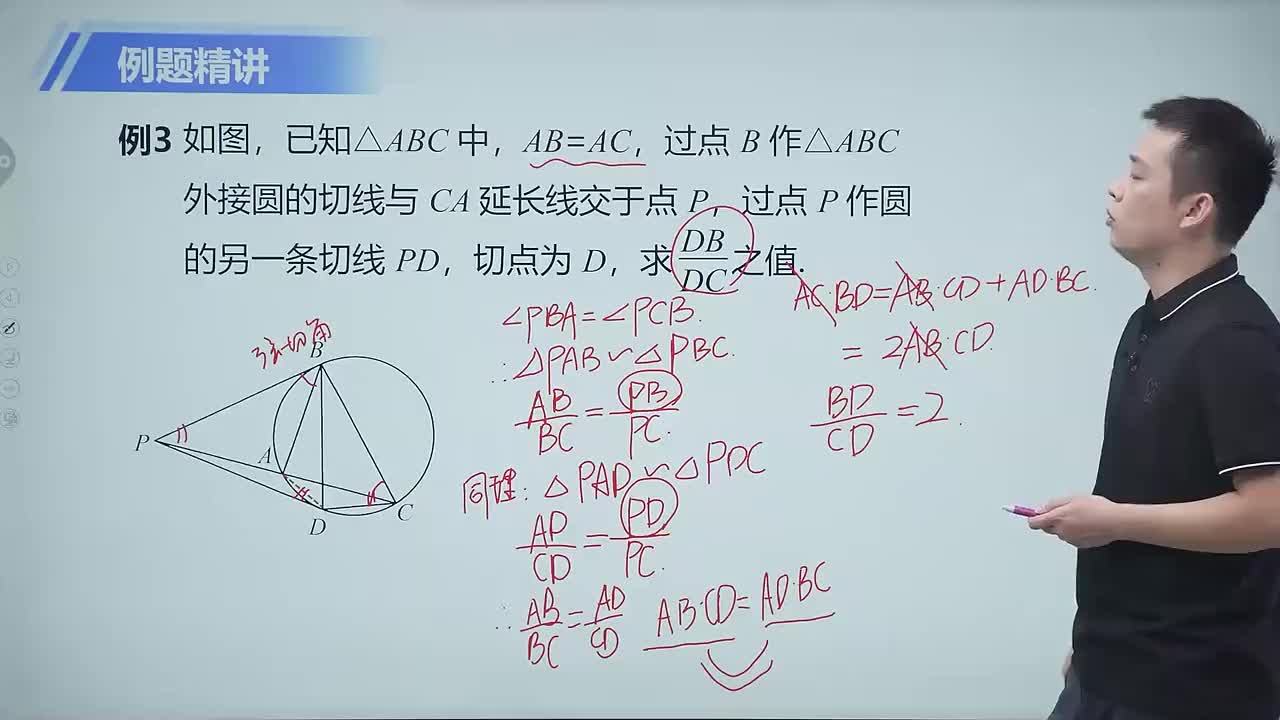 例题精讲
例3 如图，已知△ABC 中，AB=AC，过点 B 作△ABC
外接圆的切线与 CA 延长线交于点 P，过点 P 作圆
的另一条切线 PD，切点为 D，求 DB/DC 之值.
∠PBA=∠PCB.
∴△PAB∽△PBC.
AB/BC=PB/PC.
同理:△PAD∽△PDC
AD/CD=PD/PC.
∴AB/BC=AD/CD AB·CD=AD·BC
AC·BD=AB·CD+AD·BC.
=2AB·CD.
BD/CD=2.
弦切角
B
P
A
D
C